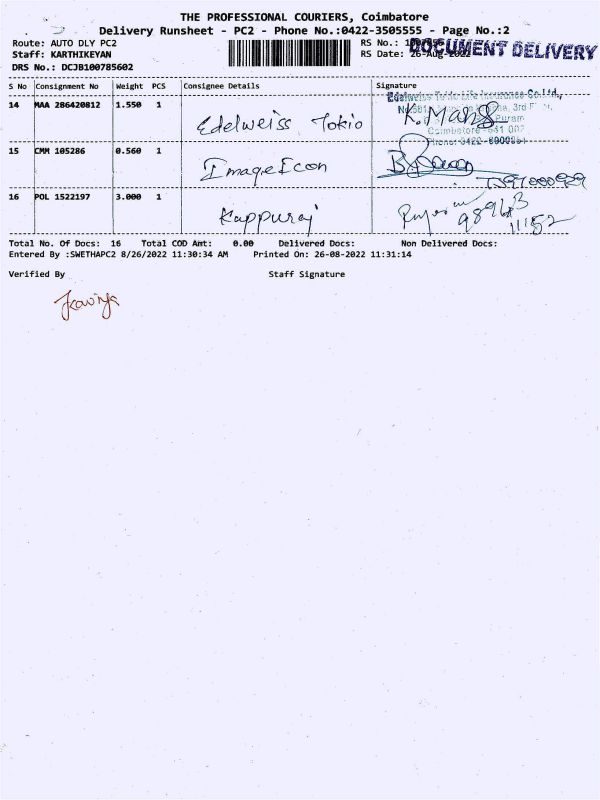 THE PROFESSIONAL COURIERS, Coimbatore
Delivery Runsheet - PC2 - Phone No.:0422-3505555 - Page No.:2
Route: AUTO DLY PC2
RS No.:
DOCUMENT DELIVERY
Staff: KARTHIKEYAN
RS Date: 26-Aug-2022
DRS No.: DCJB100785602
S No Consignment No Weight PCS Consignee Details Signature
14 MAA 286420812 1.550 1 Edelweiss Tokio K. Mani
Edelweiss Tokio Life Insurance Co.Ltd.,
3rd
Puram
Coimbatore-641 002
Phone: 0422-
15 CMM 105286 0.560 1 ImageIcon
16 POL 1522197 3.000 1 Kappuraj
Total No. Of Docs: 16 Total COD Amt: 0.00 Delivered Docs: Non Delivered Docs:
Entered By :SWETHAPC2 8/26/2022 11:30:34 AM Printed On: 26-08-2022 11:31:14
Verified By Staff Signature
Kaviya